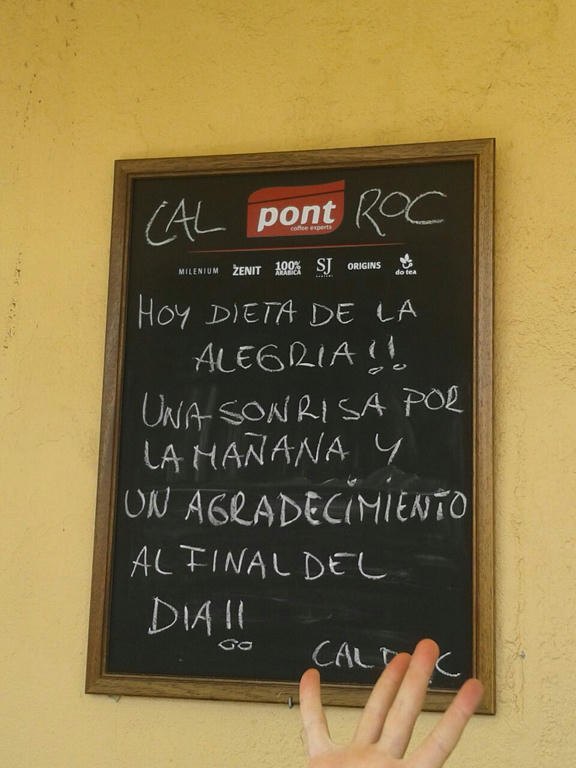 CAL pont ROC
coffee experts
MILENIUM ZENIT 100% ARABICA SJ ORIGINS do tea
HOY DIETA DE LA
ALEGRIA!!
UNA SONRISA POR
LA MAÑANA Y
UN AGRADECIMIENTO
AL FINAL DEL
DIA!!
CAL